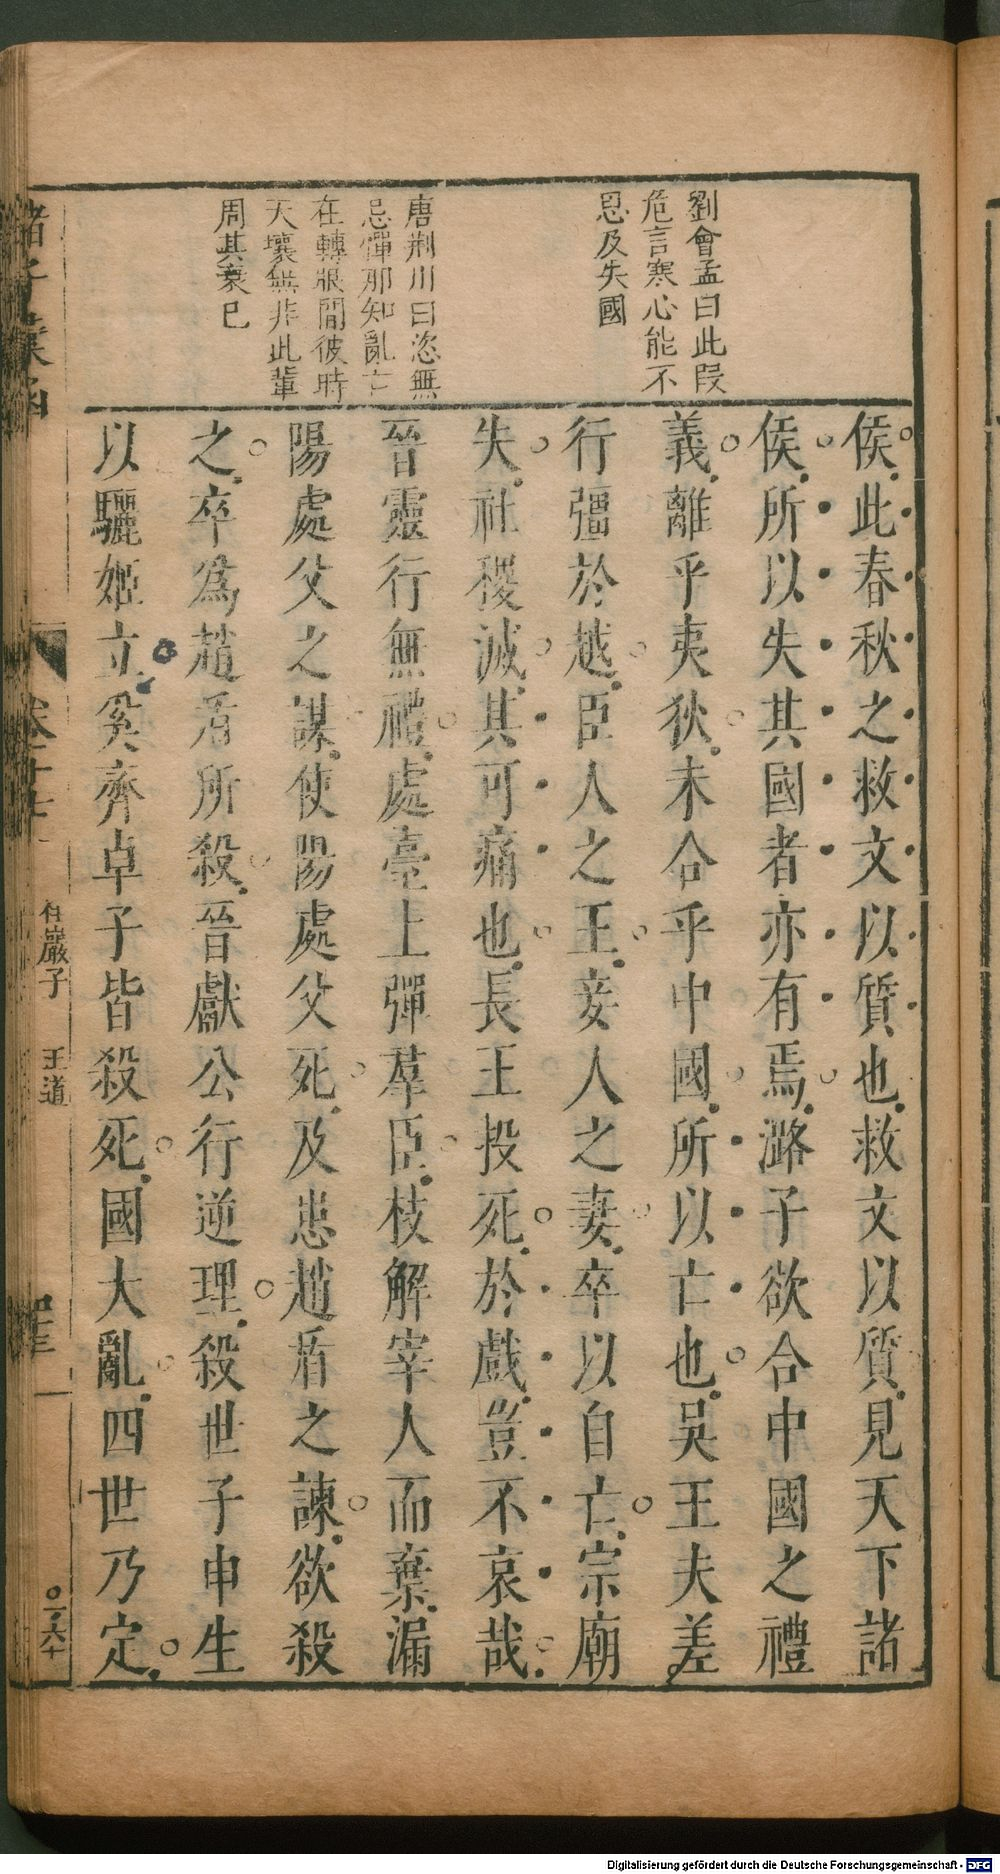 劉會孟曰此段
危言寒心能不
思及失國
唐荆川曰恣無
忌憚那知亂亡
在轉眼間彼時
天壤無非此輩
周其衰已
侯此春秋之救文以質也救文以質見天下諸
侯所以失其國者亦有焉潞子欲合中國之禮
義離乎夷狄未合乎中國所以亡也吳王夫差
行彊於越臣人之王妾人之妻卒以自亡宗廟
失社稷滅其可痛也長王投死於戲豈不哀哉
晉靈行無禮處臺上彈羣臣枝解宰人而棄漏
陽處父之謀使陽處父死及患趙盾之諫欲殺
之卒爲趙盾所殺晉獻公行逆理殺世子申生
以驪姬立奚齊卓子皆殺死國大亂四世乃定
諸子彙函
卷十七
桂巖子 王道
四十三
Digitalisierung gefördert durch die Deutsche Forschungsgemeinschaft - DFG